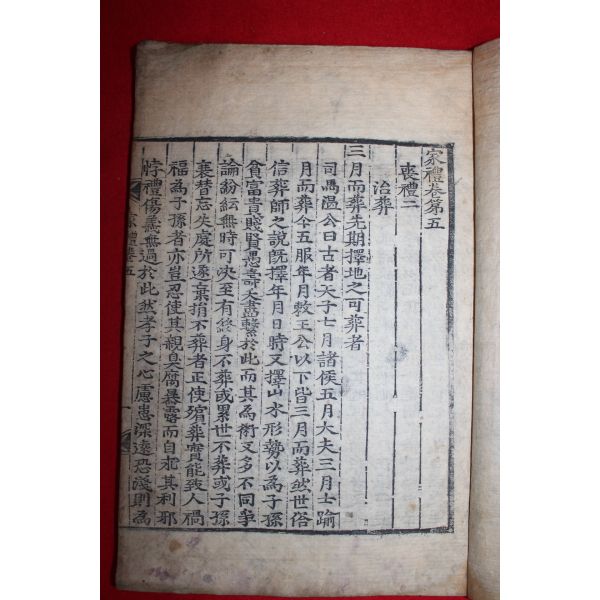 家禮卷第五
喪禮二
治葬
三月而葬先期擇地之可葬者
司馬溫公曰古者天子七月諸侯五月大夫三月士踰
月而葬今五服年月敕王公以下皆三月而葬然世俗
信葬師之說既擇年月日時又擇山水形勢以為子孫
貧富貴賤賢愚壽夭盡繫於此而其為術又多不同爭
論紛紜無時可决至有終身不葬或累世不葬或子孫
衰替忘失處所遂棄捐不葬者正使殯葬實能致人禍
福為子孫者亦豈忍使其親臭腐暴露而自求其利邪
悖禮傷義無過於此然孝子之心慮患深遠恐淺則為
家禮卷五
一